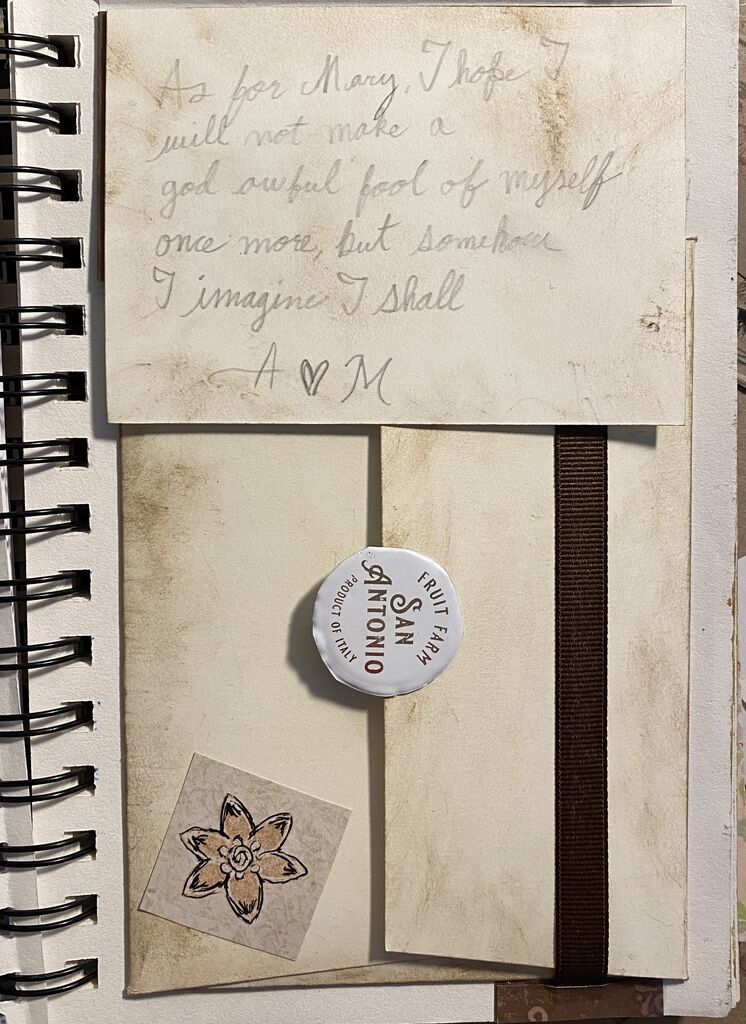 As for Mary, I hope I
will not make a
god awful fool of myself
once more, but somehow
I imagine I shall
A ♥ M
FRUIT FARM
SAN
ANTONIO
PRODUCT OF ITALY